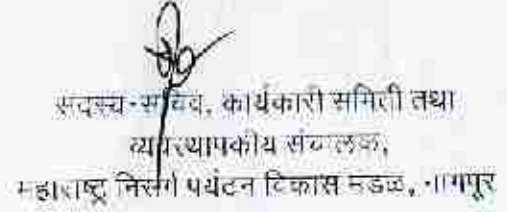 सदस्य-सचिव, कार्यकारी समिती तथा
व्यवस्थापकीय संचालक,
महाराष्ट्र निसर्ग पर्यटन विकास मंडळ, नागपूर